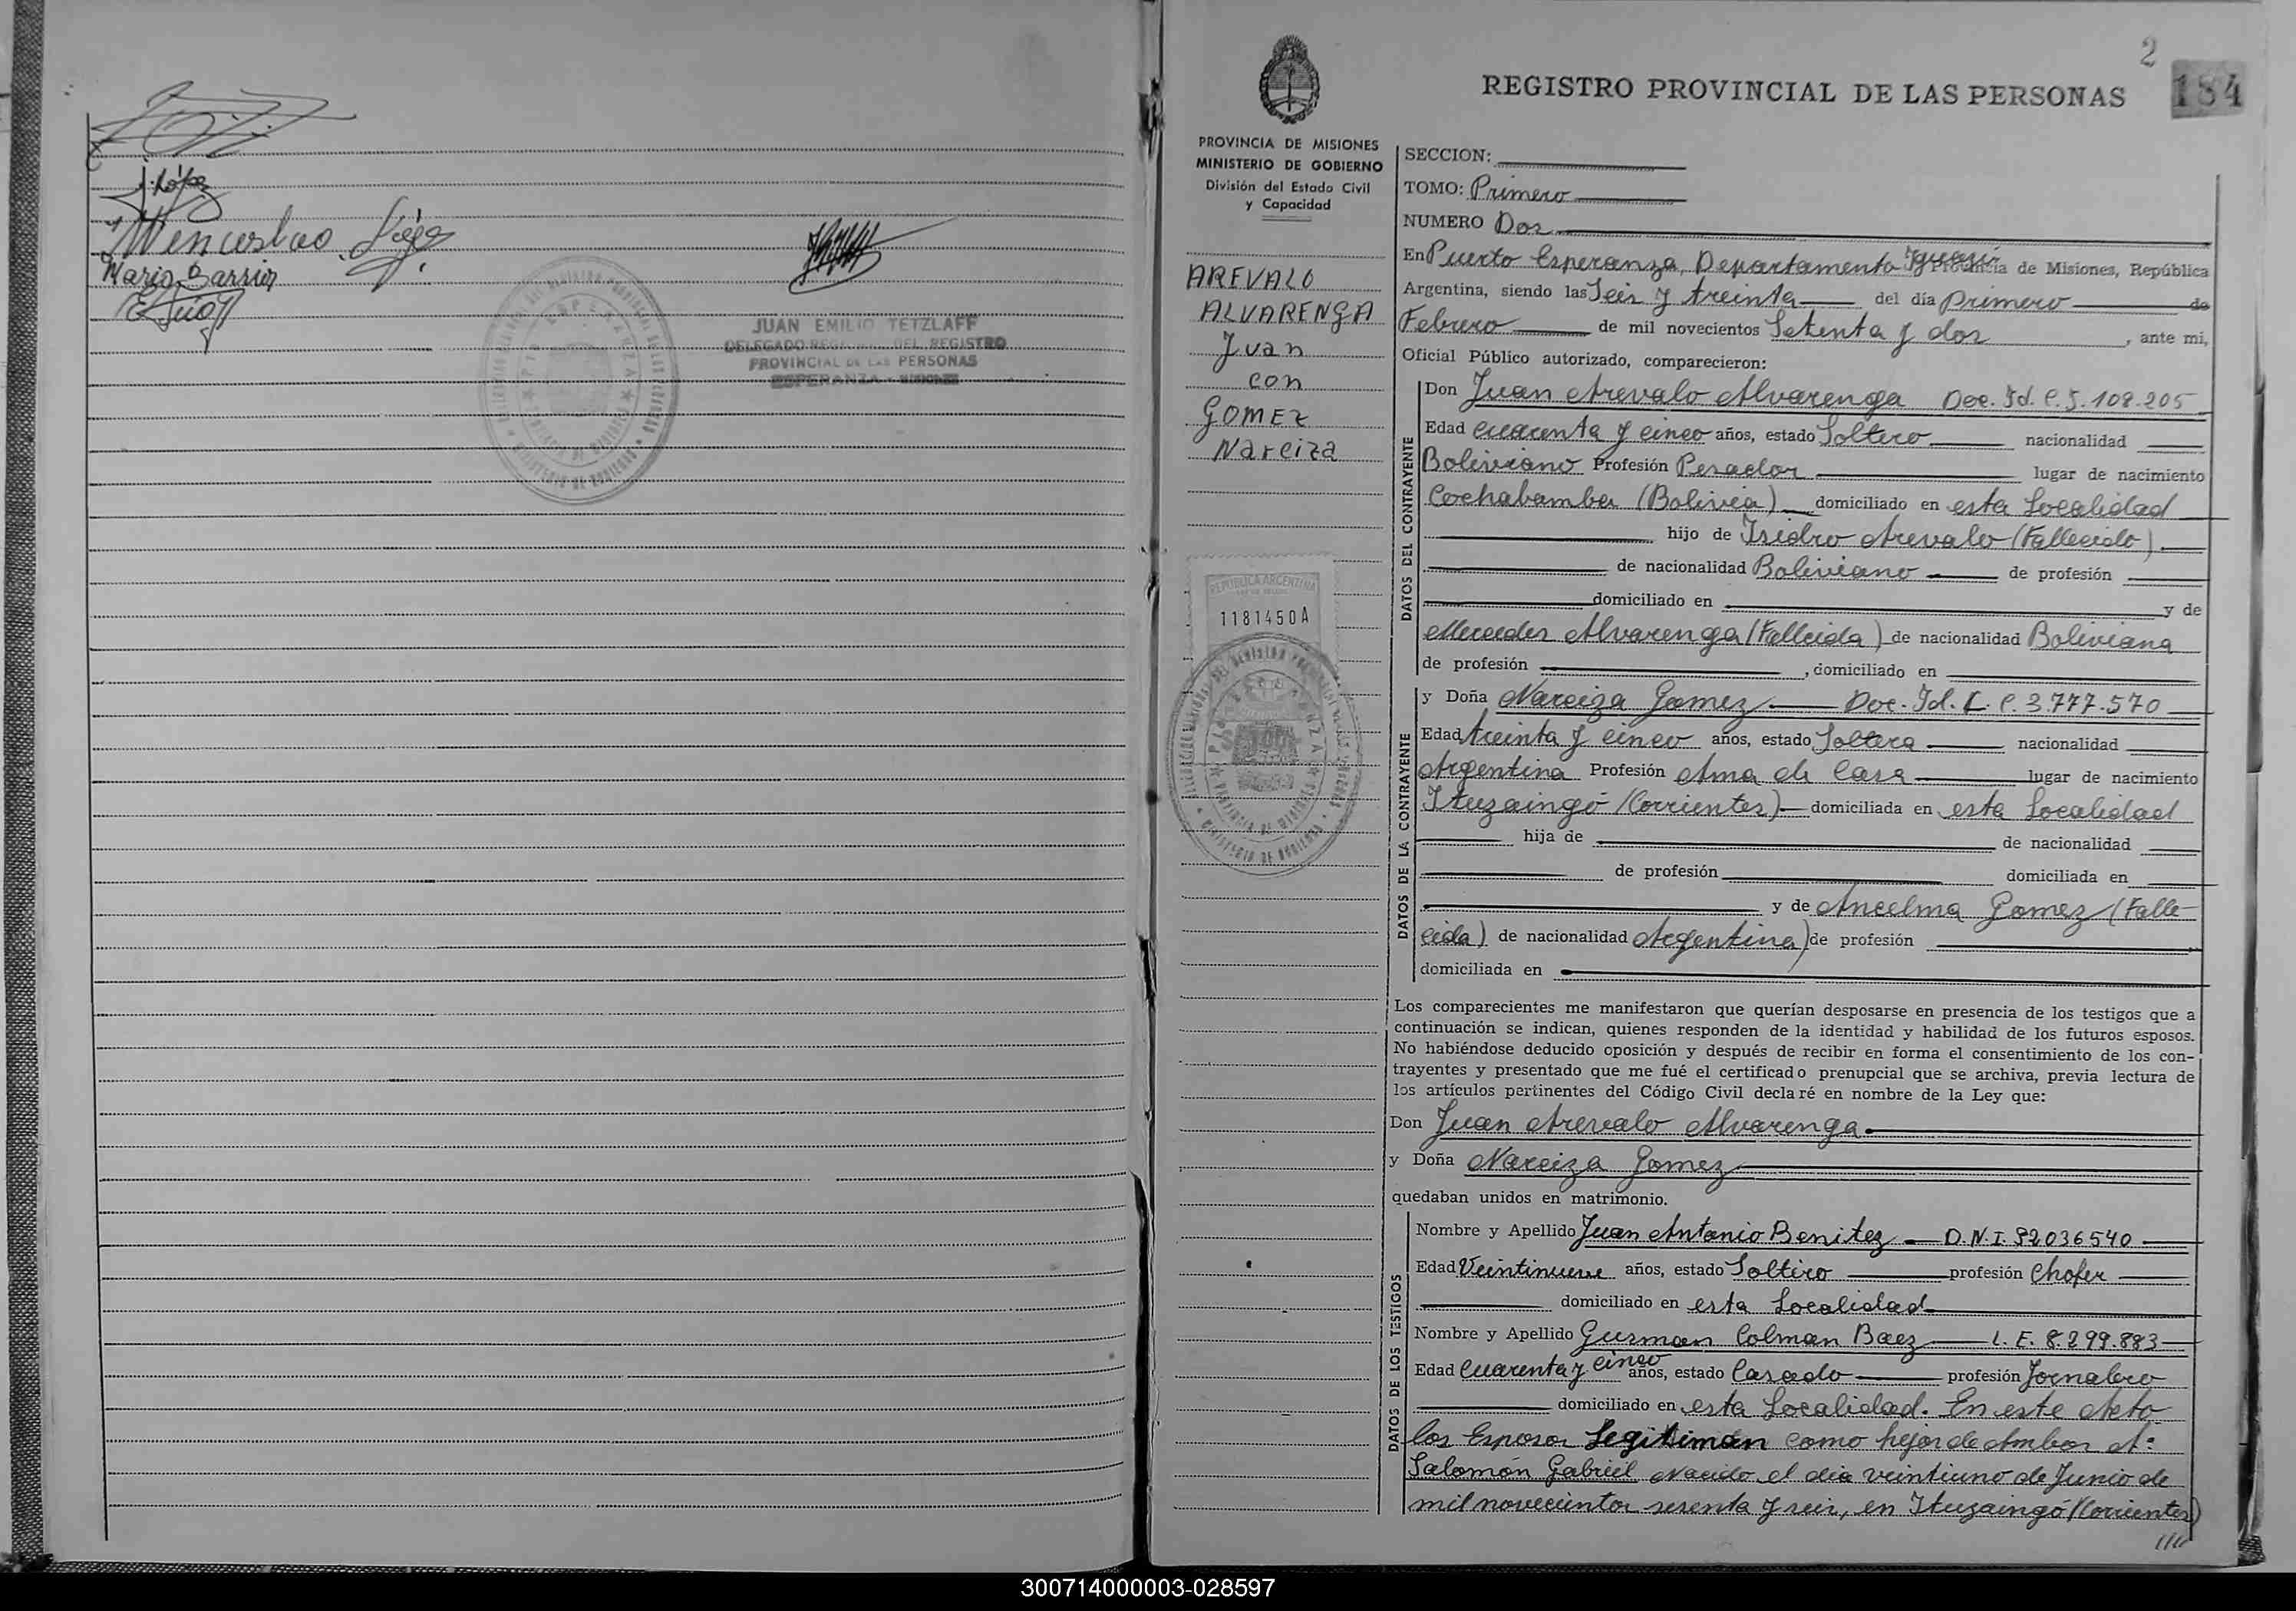 j. López
Wenceslao López
Mario Barrios
JUAN EMILIO TETZLAFF
DELEGADO DEL REGISTRO
PROVINCIAL DE LAS PERSONAS
ESPERANZA - MISIONES
2
184
REGISTRO PROVINCIAL DE LAS PERSONAS
PROVINCIA DE MISIONES
MINISTERIO DE GOBIERNO
División del Estado Civil
y Capacidad
AREVALO
ALVARENGA
Juan
con
GOMEZ
Narciza
REPUBLICA ARGENTINA
1181450A
SECCION:
TOMO: Primero
NUMERO Dos
En Puerto Esperanza, Departamento Iguazú Provincia de Misiones, República
Argentina, siendo las Seis y treinta del día Primero de
Febrero de mil novecientos Setenta y dos, ante mi,
Oficial Público autorizado, comparecieron:
DATOS DEL CONTRAYENTE
Don Juan Arevalo Alvarenga Doc. Id. C.I. 108.205
Edad cuarenta y cinco años, estado Soltero nacionalidad
Boliviano Profesión Pesador lugar de nacimiento
Cochabamba (Bolivia) domiciliado en esta Localidad
hijo de Isidro Arevalo (Fallecido)
de nacionalidad Boliviano de profesión
domiciliado en y de
Mercedes Alvarenga (Fallecida) de nacionalidad Boliviana
de profesión , domiciliado en
DATOS DE LA CONTRAYENTE
y Doña Narciza Gomez Doc. Id. L.C. 3.777.570
Edad treinta y cinco años, estado Soltera nacionalidad
Argentina Profesión Ama de Casa lugar de nacimiento
Ituzaingó (Corrientes) domiciliada en esta Localidad
hija de de nacionalidad
de profesión domiciliada en
y de Ancelma Gomez (Falle-
cida) de nacionalidad Argentina) de profesión
domiciliada en
Los comparecientes me manifestaron que querían desposarse en presencia de los testigos que a
continuación se indican, quienes responden de la identidad y habilidad de los futuros esposos.
No habiéndose deducido oposición y después de recibir en forma el consentimiento de los con-
trayentes y presentado que me fué el certificado prenupcial que se archiva, previa lectura de
los artículos pertinentes del Código Civil declaré en nombre de la Ley que:
Don Juan Arevalo Alvarenga
y Doña Narciza Gomez
quedaban unidos en matrimonio.
DATOS DE LOS TESTIGOS
Nombre y Apellido Juan Antonio Benitez D.N.I. 92036540
Edad Veintinueve años, estado Soltero profesión Chofer
domiciliado en esta Localidad
Nombre y Apellido Gusman Colman Baez L.E. 8.299.883
Edad Cuarenta y cinco años, estado Casado profesión Jornalero
domiciliado en esta Localidad. En este Acto
los Esposos Legitiman como hijos de Ambos A:
Salomón Gabriel Nacido el dia veintiuno de Junio de
mil novecientos sesenta y seis, en Ituzaingó (Corrientes)
////
300714000003-028597